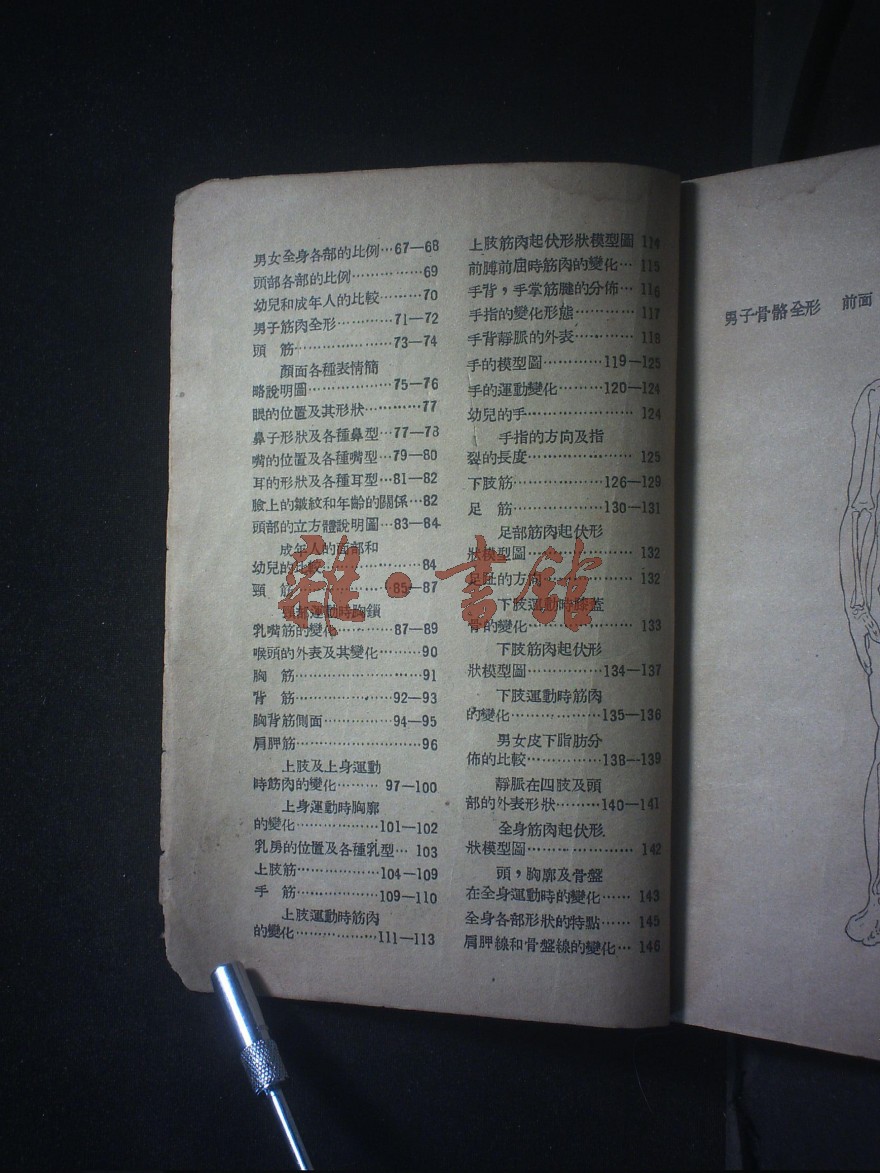 男女全身各部的比例…67—68
頭部各部的比例……………69
幼兒和成年人的比較………70
男子筋肉全形…………71—72
頭　筋…………………73—74
顏面各種表情簡
略說明圖………………75—76
眼的位置及其形狀…………77
鼻子形狀及各種鼻型…77—78
嘴的位置及各種嘴型…79—80
耳的形狀及各種耳型…81—82
臉上的皺紋和年齡的關係…82
頭部的立方體說明圖…83—84
成年人的面部和
幼兒的比較…………………84
頸　筋…………………85—87
頸部運動時胸鎖
乳嘴筋的變化…………87—89
喉頭的外表及其變化………90
胸　筋………………………91
背　筋…………………92—93
胸背筋側面……………94—95
肩胛筋………………………96
上肢及上身運動
時筋肉的變化………97—100
上身運動時胸廓
的變化………………101—102
乳房的位置及各種乳型…103
上肢筋………………104—109
手　筋………………109—110
上肢運動時筋肉
的變化………………111—113
上肢筋肉起伏形狀模型圖 114
前膊前屈時筋肉的變化…115
手背，手掌筋腱的分佈…116
手指的變化形態…………117
手背靜脈的外表…………118
手的模型圖…………119—125
手的運動變化………120—124
幼兒的手…………………124
手指的方向及指
裂的長度…………………125
下肢筋………………126—129
足　筋………………130—131
足部筋肉起伏形
狀模型圖…………………132
足趾的方向………………132
下肢運動時膝蓋
骨的變化…………………133
下肢筋肉起伏形
狀模型圖……………134—137
下肢運動時筋肉
的變化………………135—136
男女皮下脂肪分
佈的比較……………138—139
靜脈在四肢及頭
部的外表形狀………140—141
全身筋肉起伏形
狀模型圖…………………142
頭，胸廓及骨盤
在全身運動時的變化……143
全身各部形狀的特點……145
肩胛線和骨盤線的變化…146
男子骨骼全形　前面
雜·書館